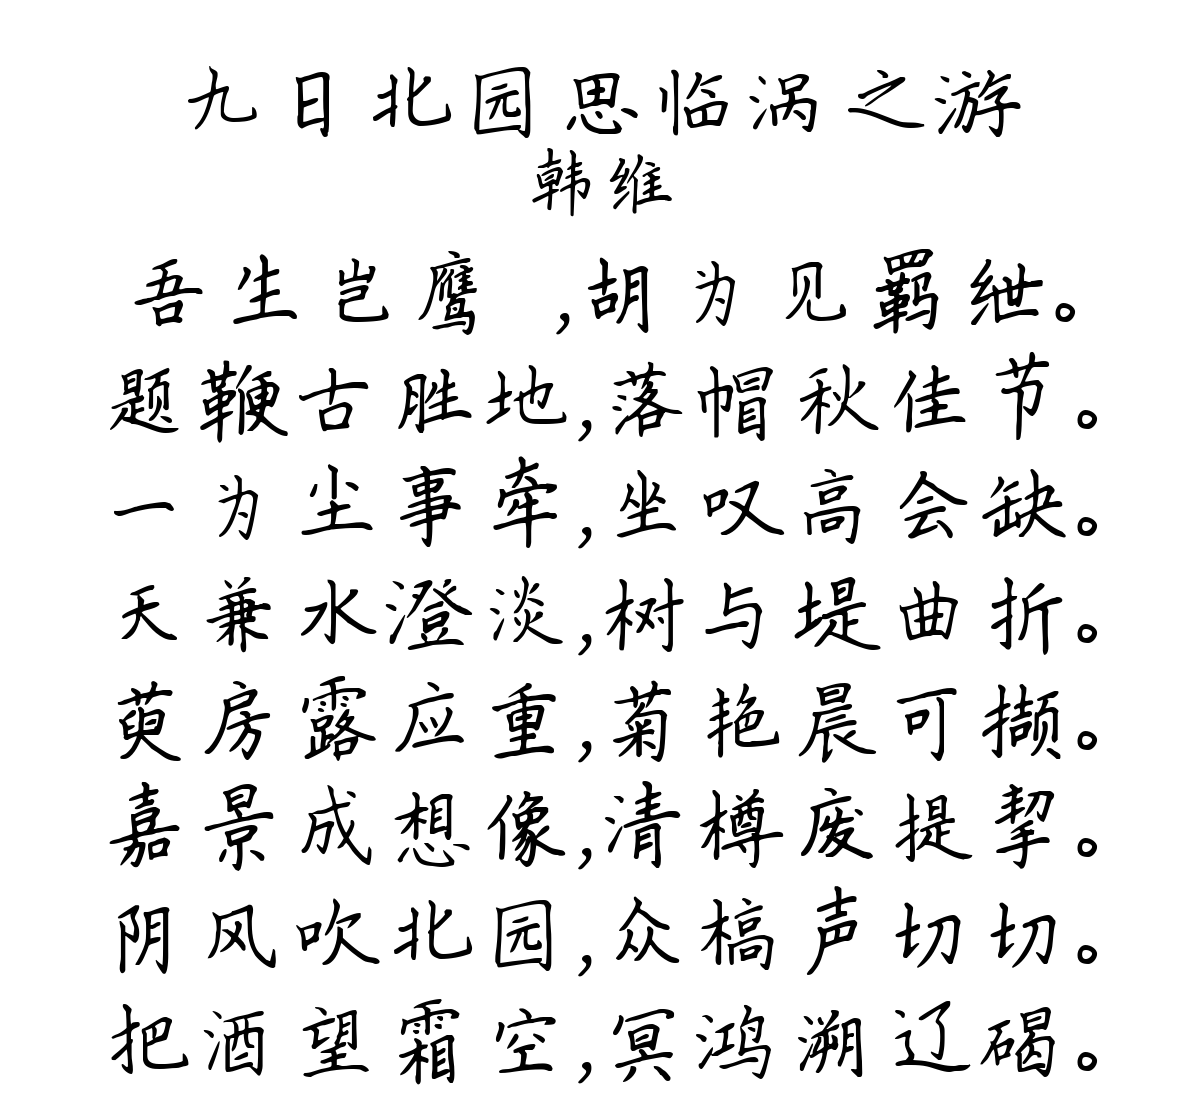 九日北园思临涡之游
韩维
吾生岂鹰,胡为见羁绁。
题鞭古胜地,落帽秋佳节。
一为尘事牵,坐叹高会缺。
天兼水澄淡,树与堤曲折。
萸房露应重,菊艳晨可撷。
嘉景成想像,清樽废提挈。
阴风吹北园,众槁声切切。
把酒望霜空,冥鸿溯辽碣。